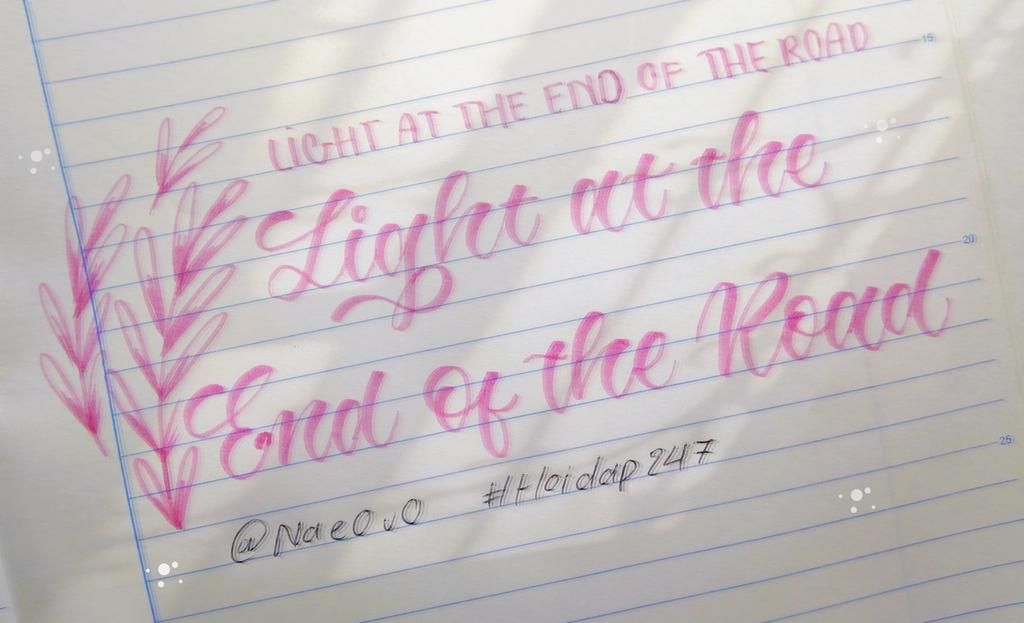 LIGHT AT THE END OF THE ROAD
Light at the
End of the Road
@Nae0v0 #Hoidap247
15
20
25